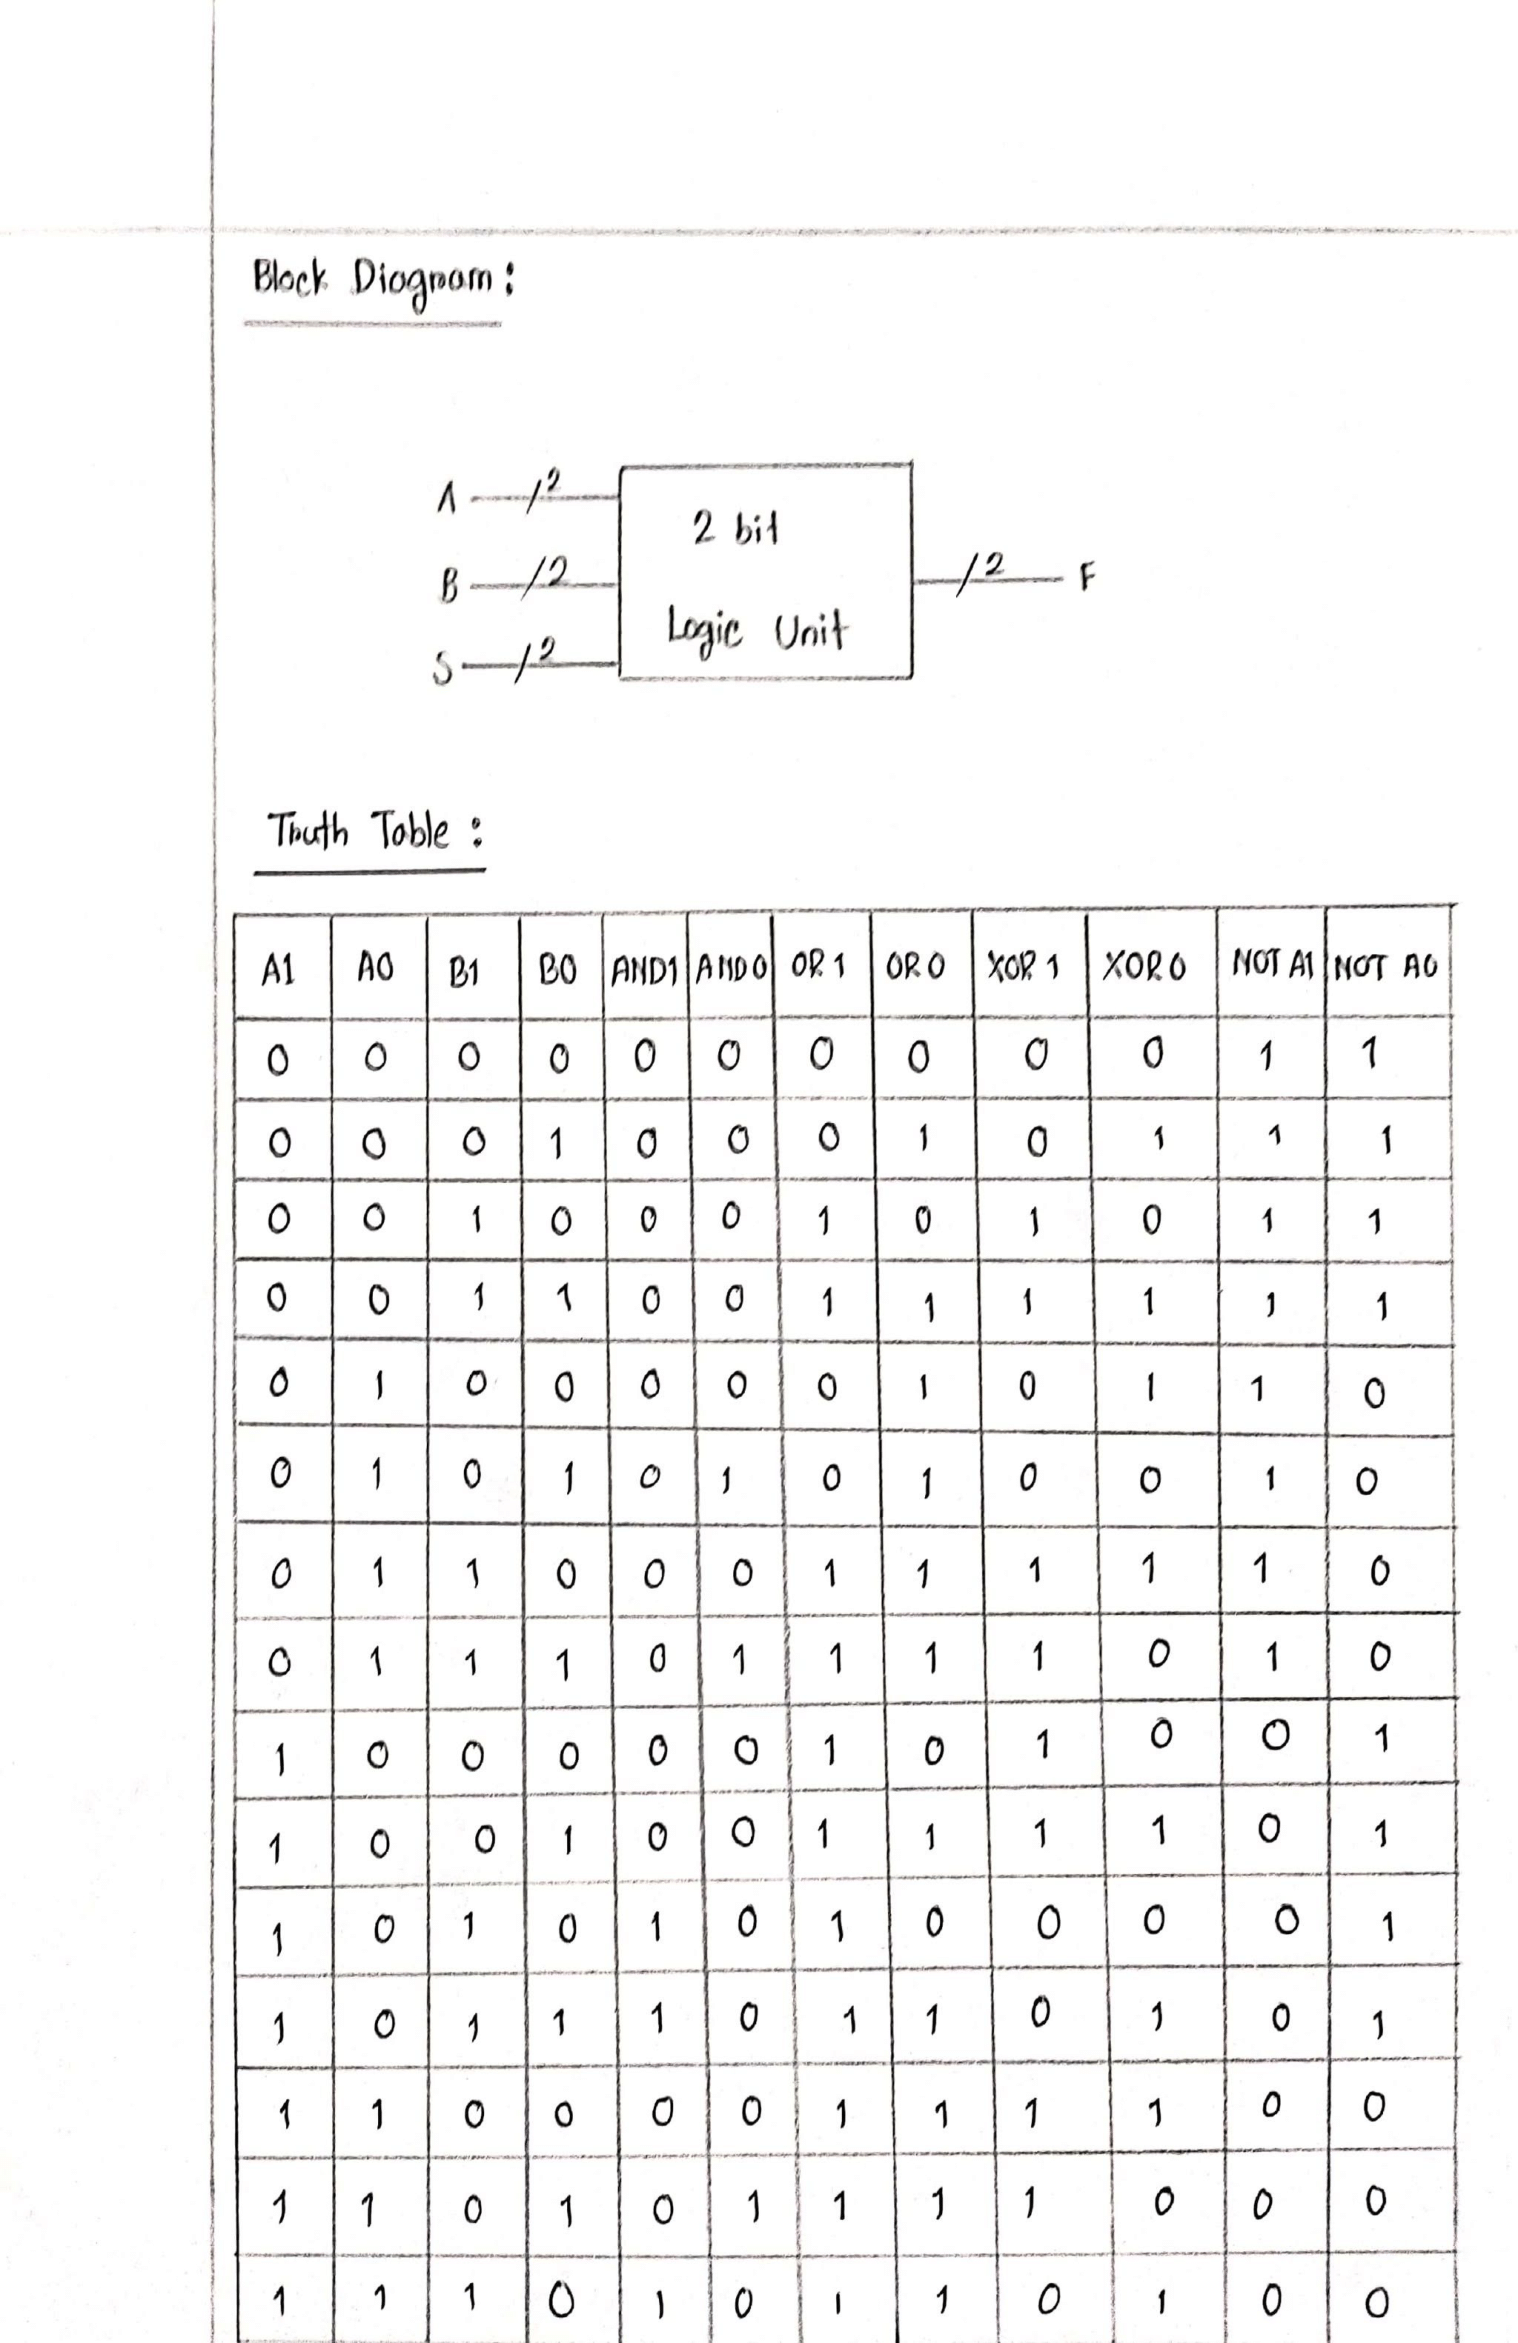 Block Diagram:
A 2
2 bit
B 2
2 F
Logic Unit
S 2
Truth Table:
A1 A0 B1 B0 AND1 AND0 OR1 OR0 XOR1 XOR0 NOT A1 NOT A0
0 0 0 0 0 0 0 0 0 0 1 1
0 0 0 1 0 0 0 1 0 1 1 1
0 0 1 0 0 0 1 0 1 0 1 1
0 0 1 1 0 0 1 1 1 1 1 1
0 1 0 0 0 0 0 1 0 1 1 0
0 1 0 1 0 1 0 1 0 0 1 0
0 1 1 0 0 0 1 1 1 1 1 0
0 1 1 1 0 1 1 1 1 0 1 0
1 0 0 0 0 0 1 0 1 0 0 1
1 0 0 1 0 0 1 1 1 1 0 1
1 0 1 0 1 0 1 0 0 0 0 1
1 0 1 1 1 0 1 1 0 1 0 1
1 1 0 0 0 0 1 1 1 1 0 0
1 1 0 1 0 1 1 1 1 0 0 0
1 1 1 0 1 0 1 1 0 1 0 0